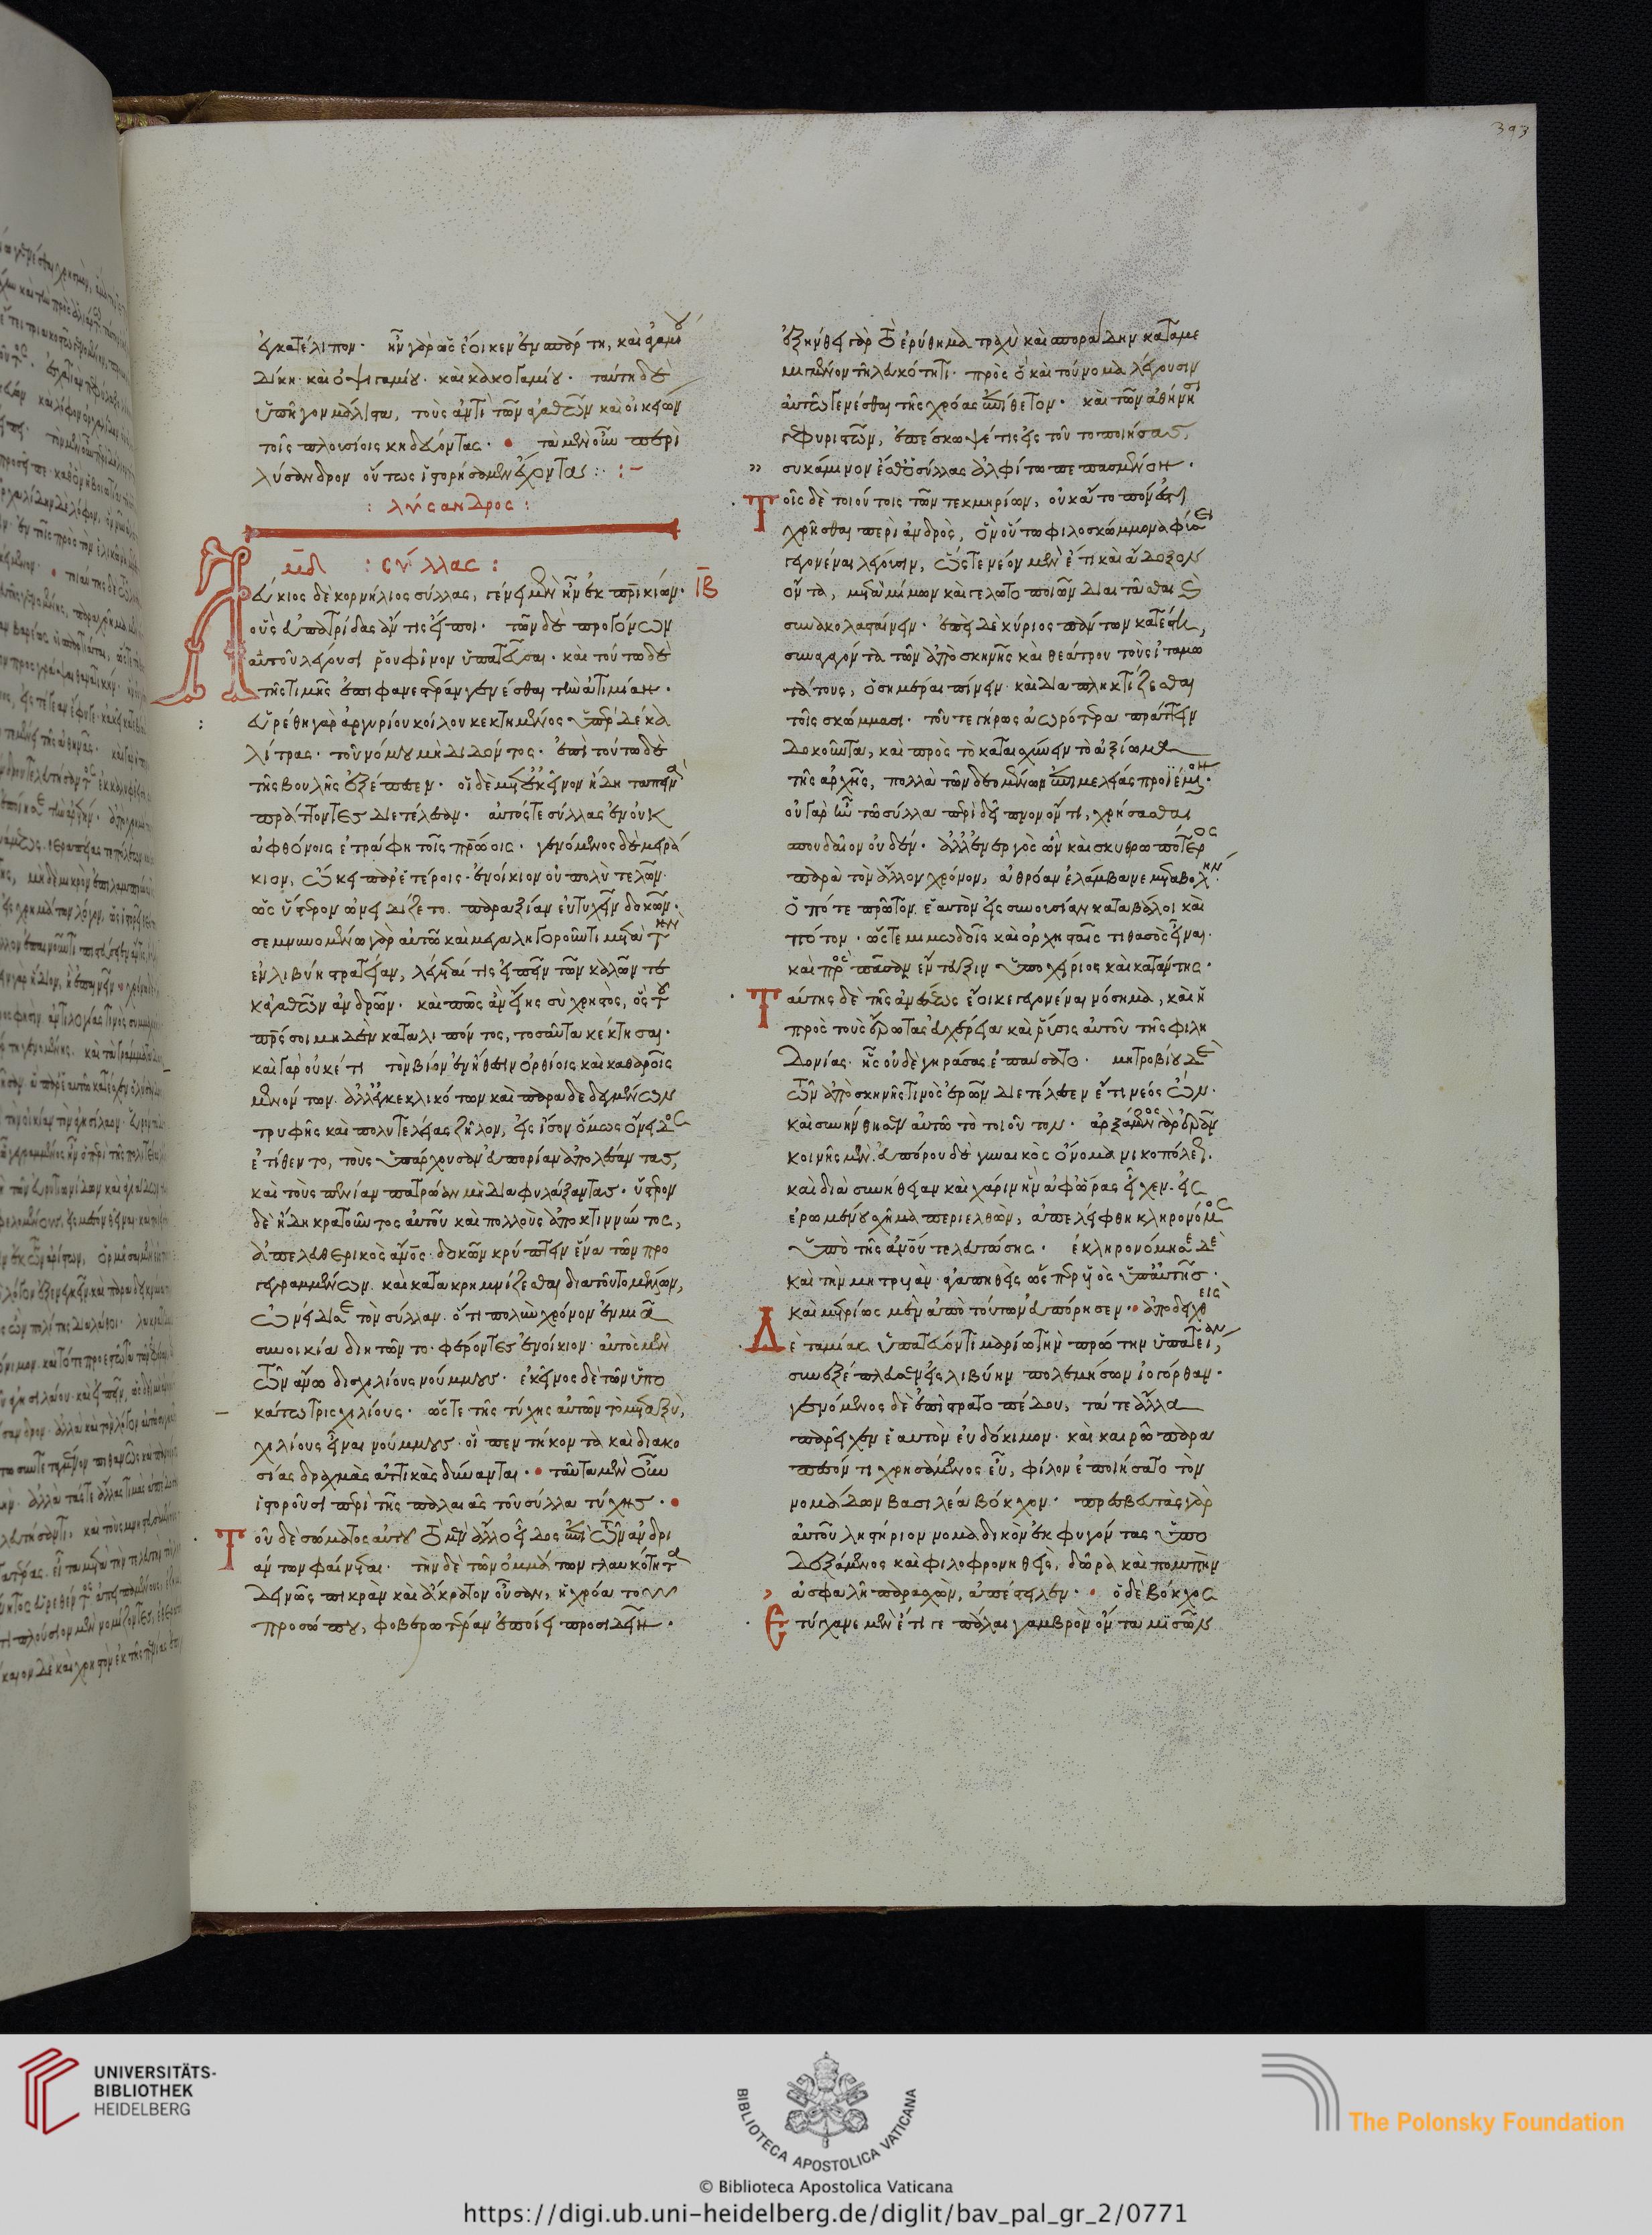 393
ἐγκατέλιπον· ἦν γὰρ ὡς ἔοικεν ἐν σπάρτη, καὶ ἀγαμίου
δίκη· καὶ ὀψιγαμίου· καὶ κακογαμίου· ταύτη δὲ
ὑπῆγον μάλιστα, τοὺς ἀντὶ τῶν ἀγαθῶν καὶ οἰκείων
τοῖς πλουσίοις κηδεύοντας· τὰ μὲν οὖν περὶ
λύσανδρον οὕτως ἱστορήσαμεν ἔχοντα :· :–
: λύσανδρος :
: σύλλας :
ΙΒ
Λεύκιος δὲ κορνήλιος σύλλας, γένει μὲν ἦν ἐκ πατρικίων·
οὓς εὐπατρίδας ἄν τις εἴποι· τῶν δὲ προγόνων
αὐτοῦ λέγουσι ῥουφῖνον ὑπατεῦσαι· καὶ τούτω δὲ
τῆς τιμῆς ἐπιφανεστέραν γενέσθαι τὴν ἀτιμίαν·
εὑρέθη γὰρ ἀργυρίου κοίλου κεκτημένος ὑπὲρ δέκα
λίτρας· τοῦ νόμου μὴ διδόντος· ἐπὶ τούτω δὲ
τῆς βουλῆς ἐξέπεσεν· οἱ δὲ μετ' ἐκεῖνον ἤδη ταπεινὰ
πράττοντες διετέλεσαν· αὐτός τε σύλλας ἐν οὐκ
ἀφθόνοις ἐτράφη τοῖς πατρώοις· γενόμενος δὲ μειρά
κιον, ᾤκει παρ' ἑτέροις· ἐνοίκιον οὐ πολὺ τελῶν·
ὡς ὕστερον ὠνειδίζετο παρ' ἀξίαν εὐτυχεῖν δοκῶν·
σεμνυνομένω γὰρ αὐτῶ καὶ μεγαληγοροῦντι μετὰ τὴν
ἐν λιβύη στρατείαν, λέγεταί τις εἰπεῖν τῶν καλῶν τε
κἀγαθῶν ἀνδρῶν· καὶ πῶς ἂν εἴης σὺ χρηστὸς, ὃς τοῦ
πατρός σοι μηδὲν καταλιπόντος, τοσαῦτα κέκτησαι·
καὶ γὰρ οὐκέτι τὸν βίον ἐν ἤθεσιν ὀρθίοις καὶ καθαροῖς
μενόντων· ἀλλ' ἐγκεκλικότων καὶ παραδεδεγμένων
τρυφῆς καὶ πολυτελείας ζῆλον, εἰς ἴσον ὅμως ὄνειδος
ἐτίθεντο, τοὺς ὑπάρχουσαν εὐπορίαν ἀπολέσαντας,
καὶ τοὺς πενίαν πατρώαν μὴ διαφυλάξαντας· ὕστερον
δὲ ἤδη κρατοῦντος αὐτοῦ καὶ πολλοὺς ἀποκτιννύντος,
ἀπελευθερικὸς ἄνθρωπος· δοκῶν κρύπτειν ἕνα τῶν προ
γεγραμμένων· καὶ κατακρημνίζεσθαι διὰ τοῦτο μέλλων,
ὠνείδισε τὸν σύλλαν· ὅτι πολὺν χρόνον ἐν μιᾶ
συνοικία διητῶντο· φέροντες ἐνοίκιον· αὐτὸς μὲν
τῶν ἄνω δισχιλίους νούμμους· ἐκεῖνος δὲ τῶν ὑπο
κάτω τρισχιλίους· ὥστε τῆς τύχης αὐτῶν τὸ μεταξὺ,
χιλίους εἶναι νούμμους· οἳ πεντήκοντα καὶ διακο
σίας δραχμὰς ἀττικὰς δύνανται· ταῦτα μὲν οὖν
ἱστοροῦσι περὶ τῆς παλαιᾶς τοῦ σύλλα τύχης·
Τοῦ δὲ σώματος αὐτοῦ τὸ μὲν ἄλλο εἶδος ἐπὶ τῶν ἀνδρι
άντων φαίνεται· τὴν δὲ τῶν ὀμμάτων γλαυκότητα
δεινῶς πικρὰν καὶ ἄκρατον οὖσαν, ἡ χρόα τοῦ
προσώπου, φοβερωτέραν ἐποίει προσιδεῖν·
ἐξήνθει γὰρ τὸ ἐρύθημα τραχὺ καὶ σποράδην καταμε
μιγμένον τῆ λευκότητι· πρὸς ὃ καὶ τοὔνομα λέγουσιν
αὐτῶ γενέσθαι τῆς χρόας ἐπίθετον· καὶ τῶν ἀθήνησι
γεφυριστῶν, ἐπέσκωψέ τις εἰς τοῦτο ποιήσας,
συκάμινον ἔσθ' ὁ σύλλας ἀλφίτω πεπασμένον·
Τοῖς δὲ τοιούτοις τῶν τεκμηρίων, οὐκ ἄτοπόν ἐστι
χρῆσθαι περὶ ἀνδρὸς, ὃν οὕτω φιλοσκώμμονα φύσει
γεγονέναι λέγουσιν, ὥστε νέον μὲν ἔτι καὶ ἄδοξον
ὄντα, μετὰ μίμων καὶ γελωτοποιῶν διαιτᾶσθαι καὶ
συνακολασταίνειν· ἐπεὶ δὲ κύριος πάντων κατέστη,
συναγαγόντα τῶν ἀπὸ σκηνῆς καὶ θεάτρου τοὺς ἰταμω
τάτους, ὁσημέραι πίνειν· καὶ διαπληκτίζεσθαι
τοῖς σκώμμασι· τοῦ τε γήρως ἀωρότερα πράττειν
δοκοῦντα, καὶ πρὸς τὸ καταισχύνειν τὸ ἀξίωμα
τῆς ἀρχῆς, πολλὰ τῶν δεομένων ἐπιμελείας προϊέμενον·
οὐ γὰρ ἦν τῶ σύλλα περὶ δεῖπνον ὄντι, χρήσασθαι
σπουδαῖον οὐδέν· ἀλλ' ἐνεργὸς ὢν καὶ σκυθρωπότερος
παρὰ τὸν ἄλλον χρόνον, ἀθρόαν ἐλάμβανε μεταβολήν·
ὁπότε πρῶτον ἑαυτὸν εἰς συνουσίαν καταβάλοι καὶ
πότον· ὥστε μιμωδοῖς καὶ ὀρχησταῖς τιθασὸς εἶναι·
καὶ πρὸς πᾶσαν ἔντευξιν ὑποχείριος καὶ κατάντης·
Ταύτης δὲ τῆς ἀνέσεως ἔοικε γεγονέναι νόσημα, καὶ ἡ
πρὸς τοὺς ἔρωτας εὐχέρεια καὶ ῥύσις αὐτοῦ τῆς φιλη
δονίας· ἧς οὐδὲ γηράσας ἐπαύσατο· μητροβίου δὲ
τῶν ἀπὸ σκηνῆς τινὸς ἐρῶν διετέλεσεν ἔτι νέος ὤν·
καὶ συνήντησεν αὐτῶ τὸ τοιοῦτον· ἀρξάμενος γὰρ ἐρᾶν
κοινῆς μὲν· εὐπόρου δὲ γυναικὸς ὄνομα νικοπόλεως·
καὶ διὰ συνήθειαν καὶ χάριν ἣν ἀφ' ὥρας εἶχεν· εἰς
ἐρωμένου σχῆμα περιελθὼν, ἀπελείφθη κληρονόμος
ὑπὸ τῆς ἀνθρώπου τελευτώσης· ἐκληρονόμησε δὲ
καὶ τὴν μητρυιὰν· ἀγαπηθεὶς ὥσπερ υἱὸς ὑπ' αὐτῆς·
καὶ μετρίως μὲν ἀπὸ τούτων εὐπόρησεν· ἀποδειχθεὶς
Δὲ ταμίας ὑπατεύοντι μαρίω τὴν πρώτην ὑπατείαν,
συνεξέπλευσεν εἰς λιβύην πολεμήσων ἰογόρθαν·
γενόμενος δὲ ἐπὶ στρατοπέδου, τά τε ἄλλα
παρεῖχεν ἑαυτὸν εὐδόκιμον· καὶ καιρῶ παρα
πεσόντι χρησάμενος εὖ, φίλον ἐποιήσατο τὸν
νομάδων βασιλέα βόκχον· πρεσβευτὰς γὰρ
αὐτοῦ ληστήριον νομαδικὸν ἐκφυγόντας ὑπο
δεξάμενος καὶ φιλοφρονηθεὶς, δῶρα καὶ πομπὴν
ἀσφαλῆ παρασχὼν, ἀπέστειλεν· ὁ δὲ βόκχος
Ἐτύγχανε μὲν ἔτι γε πάλαι γαμβρὸν ὄντα μισῶν
UNIVERSITÄTS-
BIBLIOTHEK
HEIDELBERG
BIBLIOTECA APOSTOLICA VATICANA
The Polonsky Foundation
© Biblioteca Apostolica Vaticana
https://digi.ub.uni-heidelberg.de/diglit/bav_pal_gr_2/0771